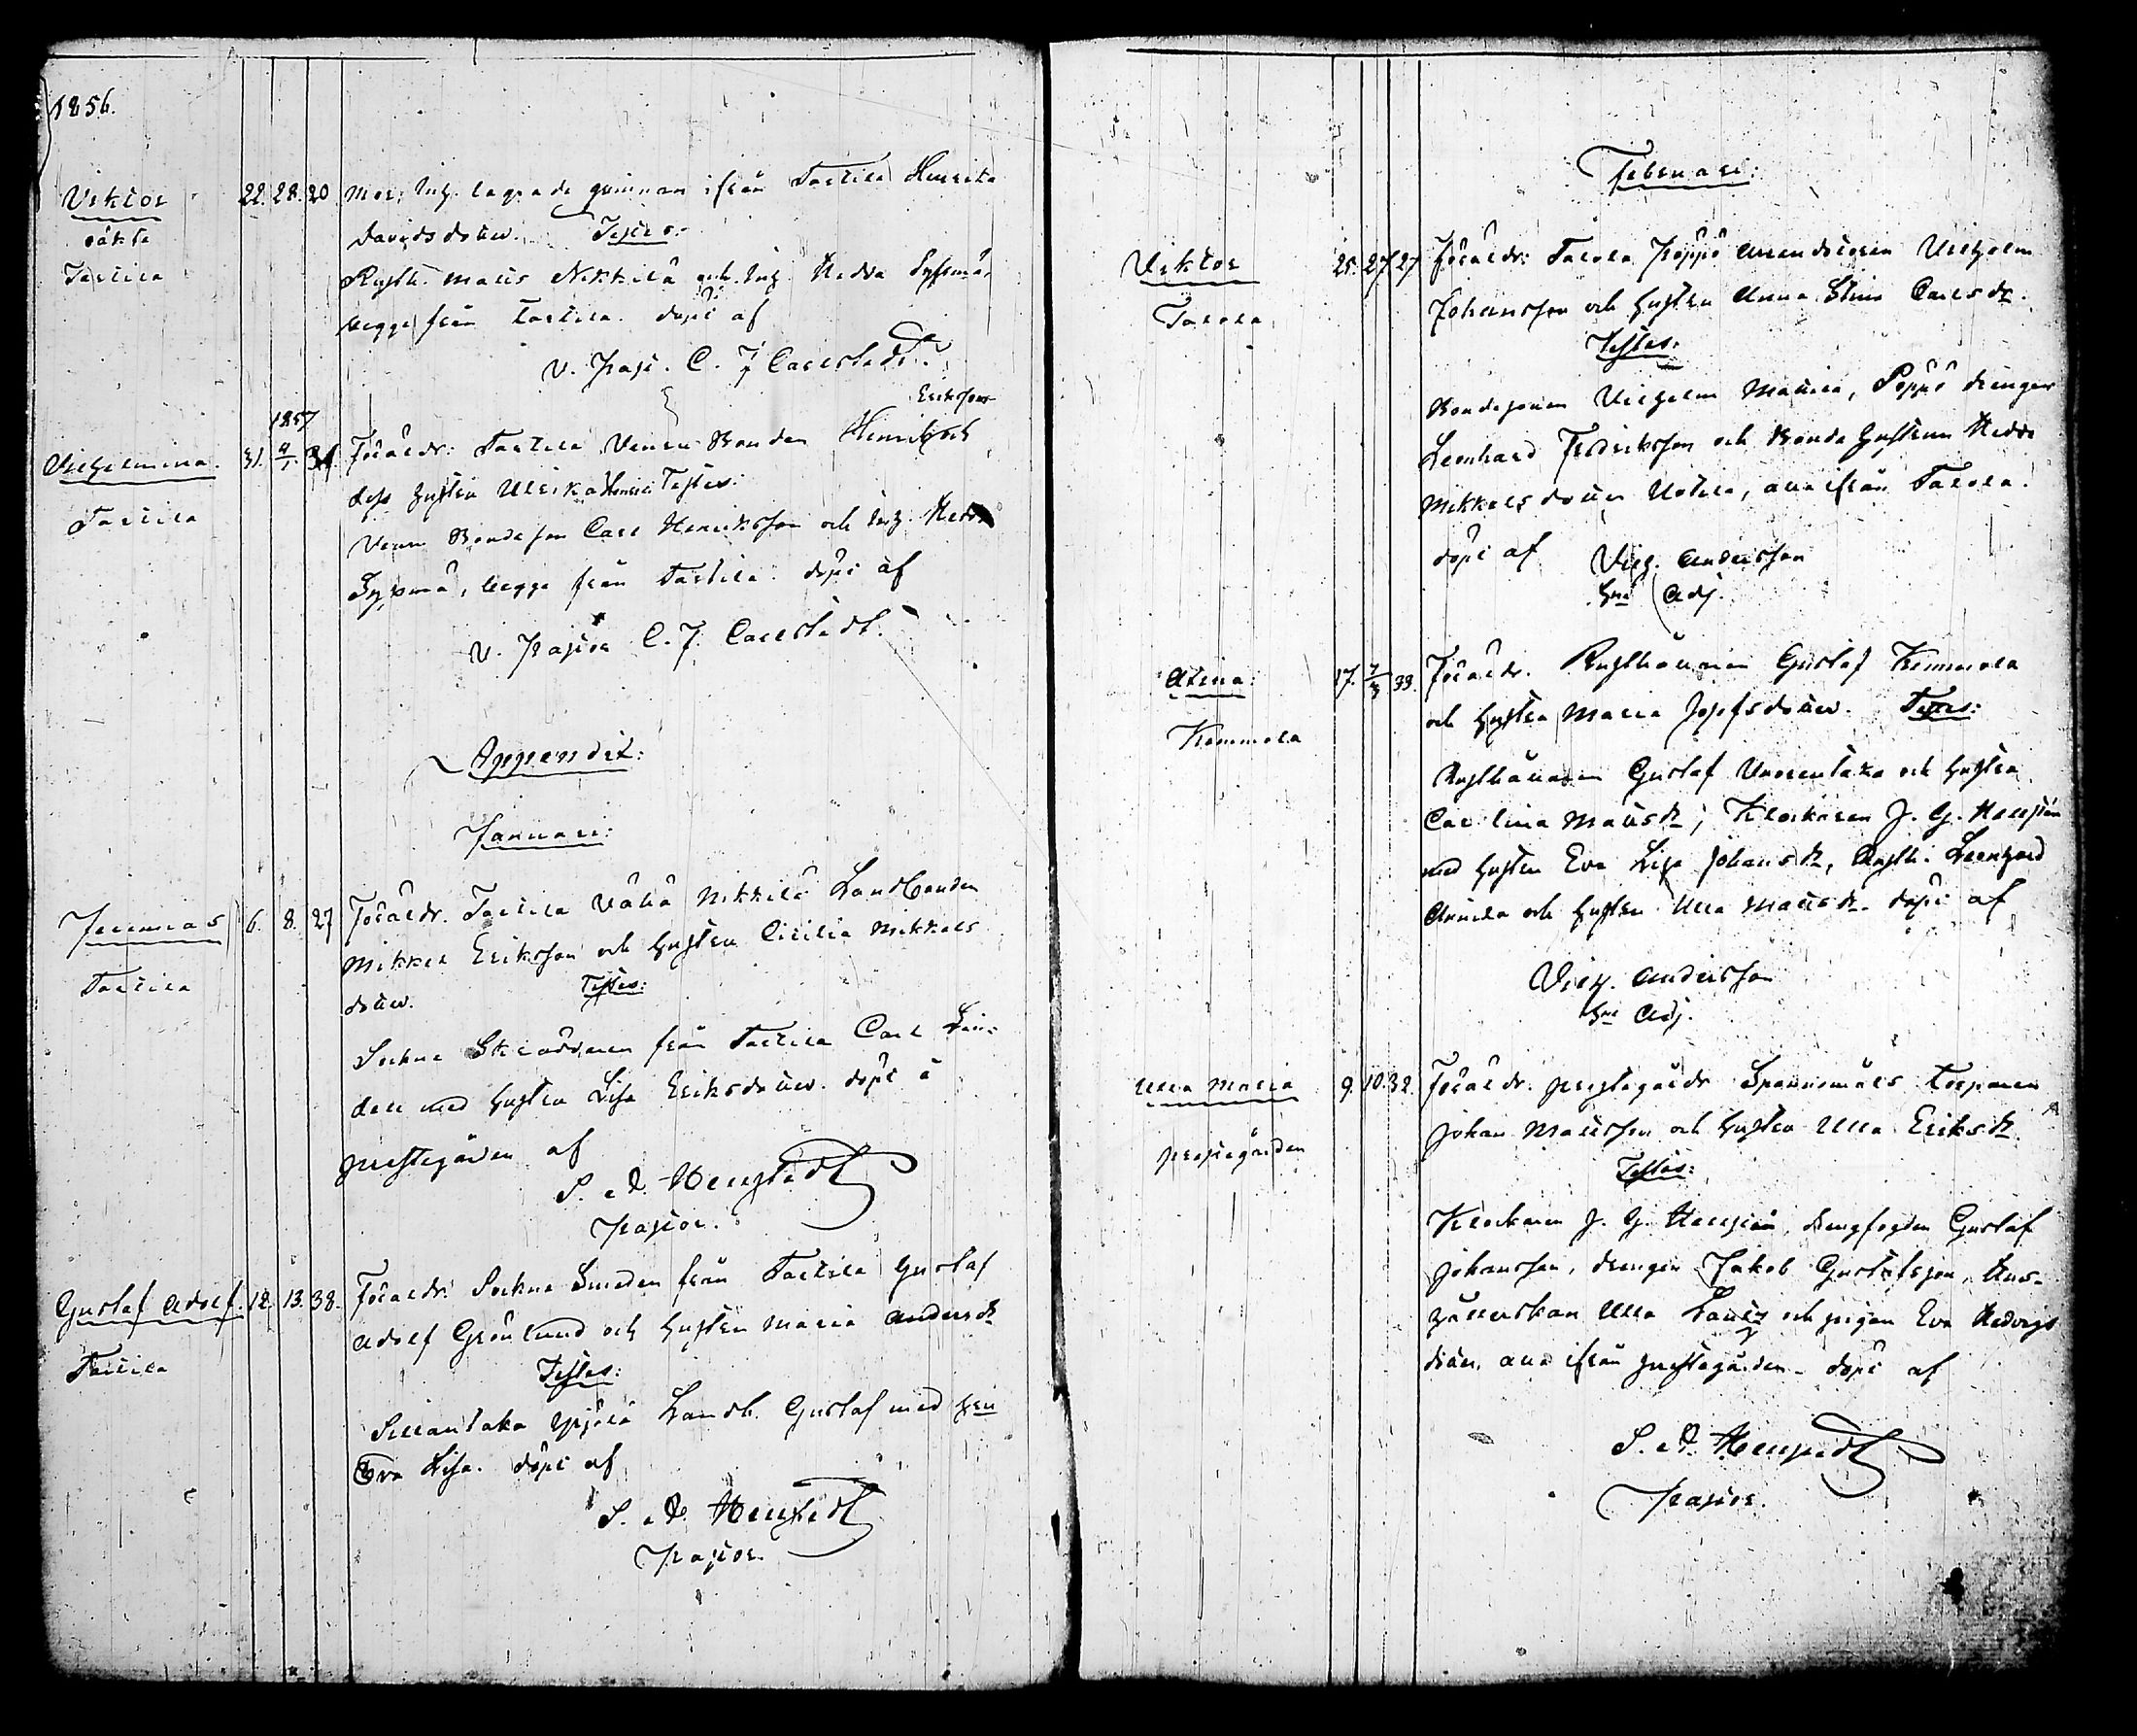 1856.
Viktor 22. 28. 20 Mor: Inh. lägrade qvinnan ifrån Tartila Henrika
oäkta Davidsdotter. Testes:
Tartila
Rusth. Matts Nikkilä och Inh. Hedda Sysmä,
begge från Tartila. döpt af
v. Past. C. J. Carlstedt.
1857
Eriksson
Vilhelmina. 31. 4/1. 31. Föräldr: Tartila Venu Bonden Henrik och
dess hustru Ulrika Testes:
Tartila
Venu Bondeson Carl Henriksson och Inh. Hedda
Sysmä, begge från Tartila. döpt af
v. Pastor C. J. Carlstedt.
Appendix:
Januari:
Jeremias 6. 8. 27 Föräldr. Tartila Vähä Nikkilä Landbonden
Mikkel Eriksson och hustru Cicilia Mikkels
Tartila
dotter. Testes:
Sockne Skräddaren från Tartila Carl Lin-
dell med hustru Lisa Eriksdotter. döpt i
prestegården af
S. A. Hellstedt
Pastor.
Gustaf Adolf. 12. 13. 38. Föräldr: Sockne Smeden från Tartila Gustaf
Adolf Grönlund och hustru Maria Andersdr
Tartila
Testes:
Sillantaka Landb. Gustaf med hru
Eva Lisa. döpt af
S. A. Hellstedt
Pastor.
Februari:
Viktor 25. 27. 27 Föräldr: Tarola Poppo arrendatoren Vilhelm
Johansson och hustru Anna Stina Carlsdr.
Tarola
Testes:
Bondesonen Vilhelm Mattila, Poppo drengen
Leonhard Fredriksson och Bonde hustrun Hedda
Mikkelsdotter Uotila, alla ifrån Tarola.
döpt af Vilh. Andersson
Adj.
Alina: 17. 2/3 33. Föräldr. Rusthållaren Gustaf Kemmola
och hustru Maria Josefsdotter. Testes:
Kemmola
Rusthållaren Gustaf Vuorentaka och hustru
Carolina Mattsdr, Klockaren J. G. Hellsten
med hustru Eva Lisa Johansdr, Rusth. Leonhard
Annila och hustru Ulla Mattsdr. döpt af
Vilh. Andersson
Adj.
Ulla Maria 9. 10. 32. Föräldr. prestegårds Spannmåls Torparen
Johan Mattsson och hustru Ulla Eriksdr
prestegården
Testes:
Klockaren J. G. Hellsten, drengfogden Gustaf
Johansson, drengen Jakob Gustafsson, Hus-
hållerskan Ulla och pigan Eva Hedvigs
dotter, alla ifrån prestegården. döpt af
S. A. Hellstedt
Pastor.